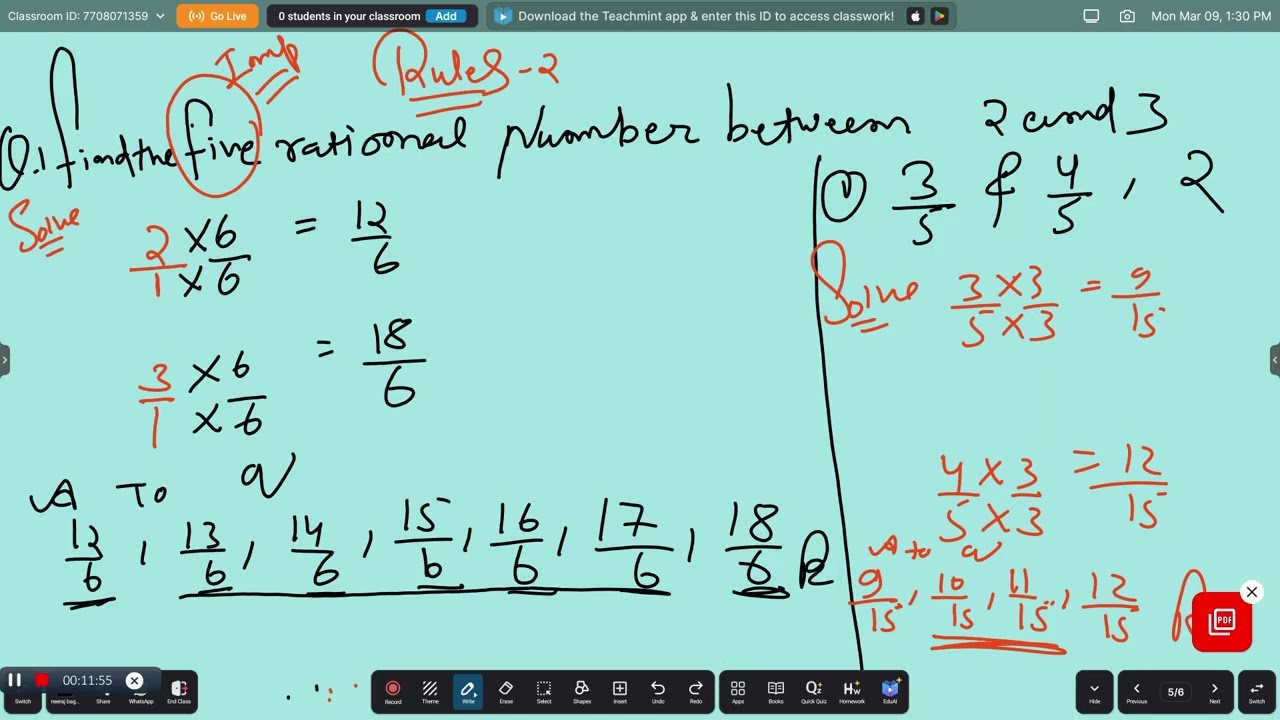 Classroom ID: 7708071359 Go Live 0 students in your classroom Add Download the Teachmint app & enter this ID to access classwork! Mon Mar 09, 1:30 PM
Imp
Rules-2
Q.1 find the five rational Number between 2 and 3
Solve
2/1 ×6/×6 = 12/6
3/1 ×6/×6 = 18/6
A To Q
12/6, 13/6, 14/6, 15/6, 16/6, 17/6, 18/6
① 3/5 & 4/5, 2
Solve
3/5 ×3/×3 = 9/15
4/5 ×3/×3 = 12/15
A to Q
9/15, 10/15, 11/15, 12/15
PDF
00:11:55
Switch neeraj bag... Share WhatsApp End Class Record Theme Write Erase Select Shapes Insert Undo Redo Apps Books Quick Quiz Homework EduAI Hide Previous 5/6 Next Switch